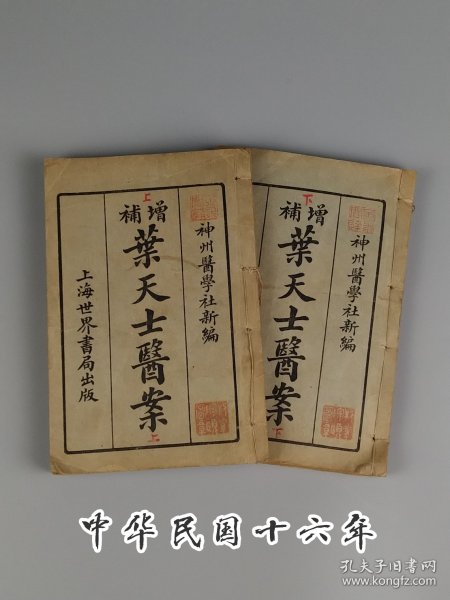 神州醫學社新編
上
增補
葉天士醫案
上
上海世界書局出版
神州醫學社新編
下
增補
葉天士醫案
下
中华民国十六年
孔夫子旧书网
www.kongfz.com